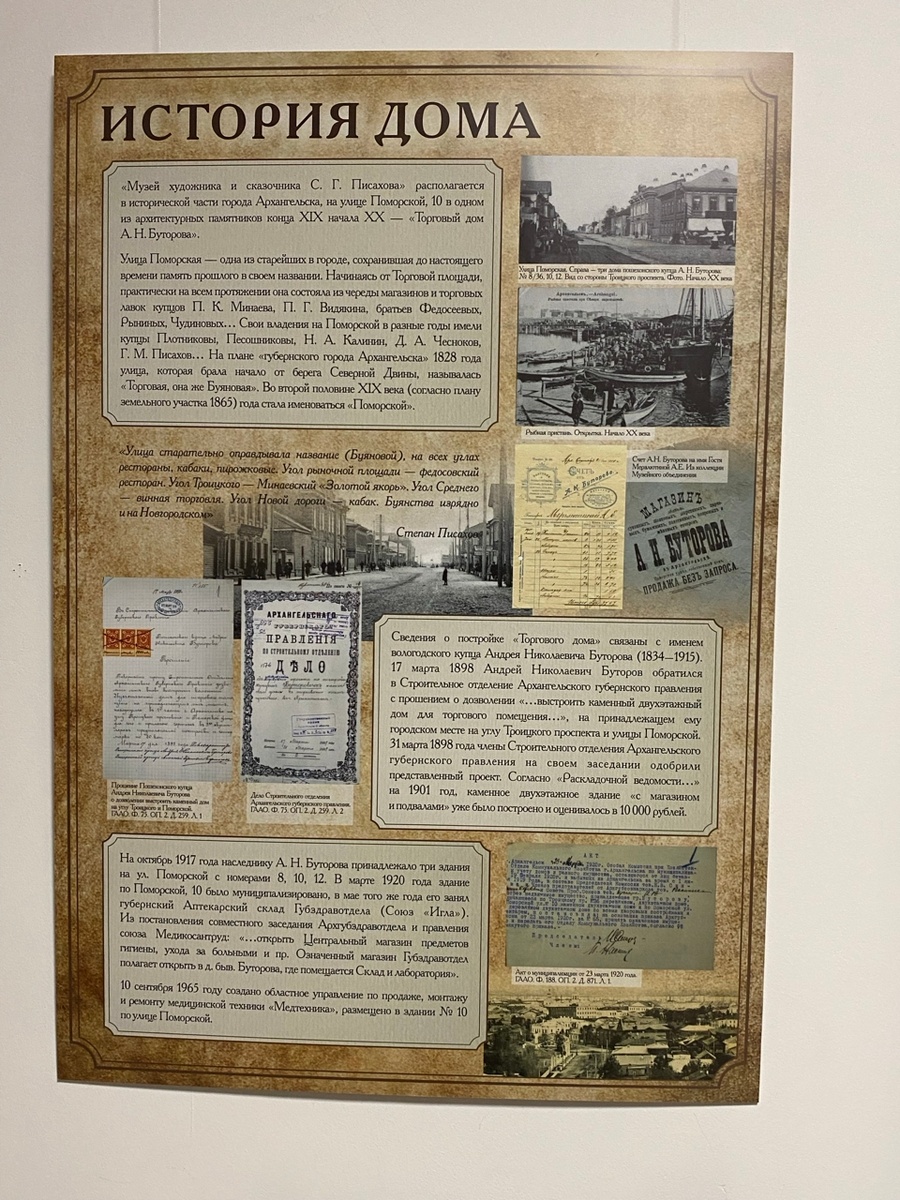 ИСТОРИЯ ДОМА
«Музей художника и сказочника С. Г. Писахова» располагается
в исторической части города Архангельска, на улице Поморской, 10 в одном
из архитектурных памятников конца XIX начала XX — «Торговый дом
А. Н. Буторова».
Улица Поморская — одна из старейших в городе, сохранившая до настоящего
времени память прошлого в своем названии. Начинаясь от Торговой площади,
практически на всем протяжении она состояла из череды магазинов и торговых
лавок купцов П. К. Минаева, П. Г. Видякина, братьев Федосеевых,
Рыниных, Чудиновых... Свои владения на Поморской в разные годы имели
купцы Плотниковы, Песошниковы, Н. А. Калинин, Д. А. Чесноков,
Г. М. Писахов... На плане «губернского города Архангельска» 1828 года
улица, которая брала начало от берега Северной Двины, называлась
«Торговая, она же Буяновая». Во второй половине XIX века (согласно плану
земельного участка 1865) года стала именоваться «Поморской».
Улица Поморская. Справа – три дома пошехонского купца А. Н. Буторова:
№ 8/36, 10, 12. Вид со стороны Троицкого проспекта. Фото. Начало XX века
Архангельскъ.—Archangel.
Рыбная пристань. Открытка. Начало XX века
«Улица старательно оправдывала название (Буяновой), на всех углах
рестораны, кабаки, пирожковые. Угол рыночной площади – федосовский
ресторан. Угол Троицкого – Минаевский «Золотой якорь». Угол Среднего
– винная торговля. Угол Новой дороги – кабак. Буянства изрядно
и на Новгородском»
Степан Писахов
Счет А.Н. Буторова на имя Гостя
Мерзлютиной А.Е. Из коллекции
Музейного объединения
СЧЕТЪ
А. Н. Буторова
МАГАЗИНЪ
А. Н. БУТОРОВА
ПРОДАЖА БЕЗЪ ЗАПРОСА.
АРХАНГЕЛЬСКАГО
ГУБЕРНСКАГО
ПРАВЛЕНІЯ
ПО СТРОИТЕЛЬНОМУ ОТДѢЛЕНІЮ
ДѢЛО
Прошение Пошехонского купца
Андрея Николаевича Буторова
о дозволении выстроить каменный дом
на углу Троицкого и Поморской.
ГААО. Ф. 75. ОП. 2. Д. 259. Л. 1
Дело Строительного отделения
Архангельского губернского правления.
ГААО. Ф. 75. ОП. 2. Д. 259. Л. 2
Сведения о постройке «Торгового дома» связаны с именем
вологодского купца Андрея Николаевича Буторова (1834–1915).
17 марта 1898 Андрей Николаевич Буторов обратился
в Строительное отделение Архангельского губернского правления
с прошением о дозволении «...выстроить каменный двухэтажный
дом для торгового помещения...», на принадлежащем ему
городском месте на углу Троицкого проспекта и улицы Поморской.
31 марта 1898 года члены Строительного отделения Архангельского
губернского правления на своем заседании одобрили
представленный проект. Согласно «Раскладочной ведомости...»
на 1901 год, каменное двухэтажное здание «с магазином
и подвалами» уже было построено и оценивалось в 10 000 рублей.
На октябрь 1917 года наследнику А. Н. Буторова принадлежало три здания
на ул. Поморской с номерами 8, 10, 12. В марте 1920 года здание
по Поморской, 10 было муниципализировано, в мае того же года его занял
губернский Аптекарский склад Губздравотдела (Союз «Игла»).
Из постановления совместного заседания Архгубздравотдела и правления
союза Медикосантруд: «...открыть Центральный магазин предметов
гигиены, ухода за больными и пр. Означенный магазин Губздравотдел
полагает открыть в д. быв. Буторова, где помещается Склад и лаборатория».
10 сентября 1965 году создано областное управление по продаже, монтажу
и ремонту медицинской техники «Медтехника», размещено в здании № 10
по улице Поморской.
АКТ
Председатель
Члены
Акт о муниципализации от 23 марта 1920 года.
ГААО. Ф. 188. ОП. 2. Д. 871. Л. 1